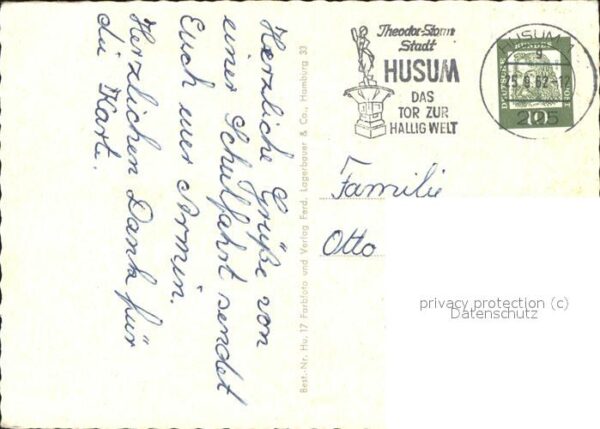 Herzliche Grüße von
einer Schulfahrt sendet
Euch euer Armin.
Herzlichen Dank für
die Karte.
Best.-Nr. Hu. 17 Farbfoto und Verlag Ferd. Lagerbauer & Co., Hamburg 33
Theodor-Storm
Stadt
HUSUM
DAS
TOR ZUR
HALLIG WELT
HUSUM
25.6.62-17
DEUTSCHE BUNDESPOST
Familie
Otto
privacy protection (c)
Datenschutz